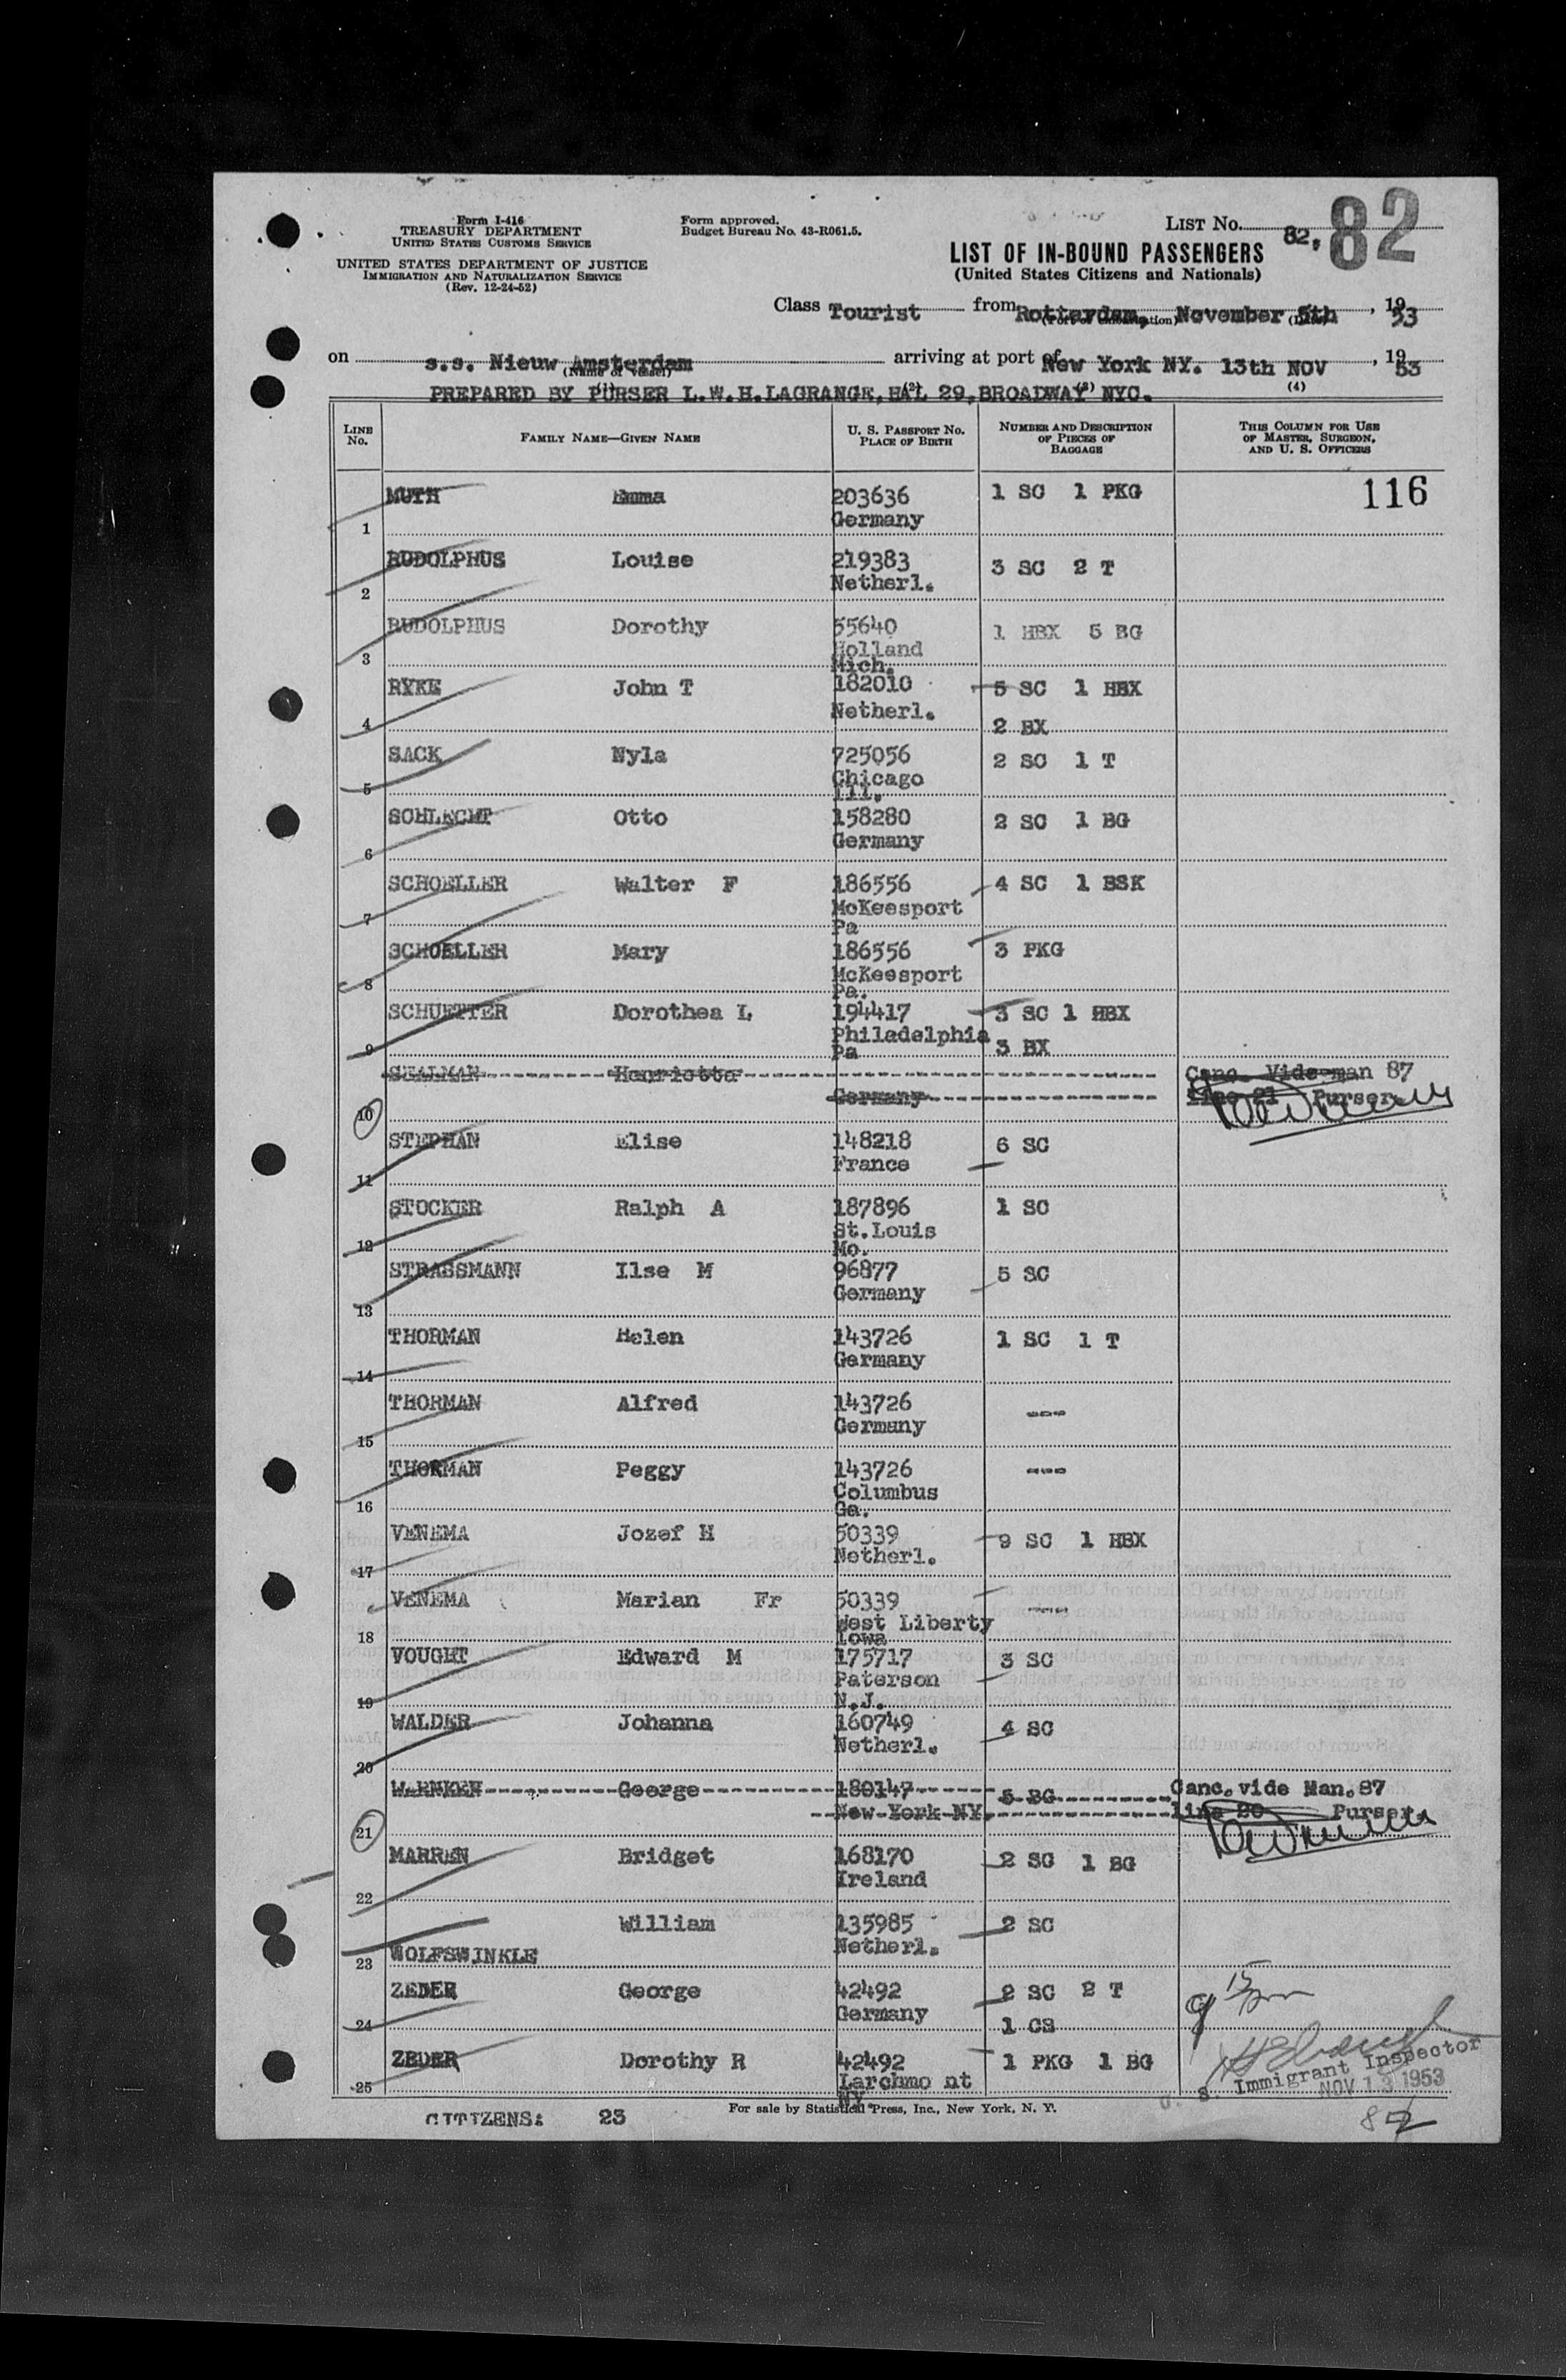 Form I-416
TREASURY DEPARTMENT
UNITED STATES CUSTOMS SERVICE
UNITED STATES DEPARTMENT OF JUSTICE
IMMIGRATION AND NATURALIZATION SERVICE
(Rev. 12-24-52)
Form approved.
Budget Bureau No. 43-R061.5.
LIST No. 82. 82
LIST OF IN-BOUND PASSENGERS
(United States Citizens and Nationals)
Class Tourist from Rotterdam, November 5th, 1953
on s.s. Nieuw Amsterdam arriving at port of New York NY. 13th NOV, 1953
(Name of Vessel)
PREPARED BY PURSER L.W.H.LAGRANGE, HAL 29, BROADWAY NYC.
(1) (2) (3) (4)
LINE No. FAMILY NAME—GIVEN NAME U. S. PASSPORT No. PLACE OF BIRTH NUMBER AND DESCRIPTION OF PIECES OF BAGGAGE THIS COLUMN FOR USE OF MASTER, SURGEON, AND U. S. OFFICERS
116
1 MUTH Emma 203636 1 SC 1 PKG
Germany
2 RUDOLPHUS Louise 219383 3 SC 2 T
Netherl.
3 RUDOLPHUS Dorothy 55640 1 HBX 5 BG
Holland
Mich.
4 RYKE John T 182010 5 SC 1 HBX
Netherl. 2 BX
5 SACK Nyla 725056 2 SC 1 T
Chicago
Ill.
6 SCHLECHT Otto 158280 2 SC 1 BG
Germany
7 SCHOELLER Walter F 186556 4 SC 1 BSK
McKeesport
Pa
8 SCHOELLER Mary 186556 3 PKG
McKeesport
Pa.
9 SCHUETTER Dorothea L 194417 3 SC 1 HBX
Philadelphia 3 BX
Pa
10 SEALMAN Henrietta Canc. Vide man 87
Germany line 21 Purser.
11 STEPHAN Elise 148218 6 SC
France
12 STOCKER Ralph A 187896 1 SC
St.Louis
Mo.
13 STRASSMANN Ilse M 96877 5 SC
Germany
14 THORMAN Helen 143726 1 SC 1 T
Germany
15 THORMAN Alfred 143726 ---
Germany
16 THORMAN Peggy 143726 ---
Columbus
Ga.
17 VENEMA Jozef H 50339 9 SC 1 HBX
Netherl.
18 VENEMA Marian Fr 50339 ----
West Liberty
Iowa
19 VOUGHT Edward M 175717 3 SC
Paterson
N.J.
20 WALDER Johanna 160749 4 SC
Netherl.
21 WARNKEN George 180147 5 BG Canc.vide Man.87
New York NY. line 20 Purser.
22 MARREN Bridget 168170 2 SC 1 BG
Ireland
23 William 135985 2 SC
WOLFSWINKLE Netherl.
24 ZEDER George 42492 2 SC 2 T
Germany 1 CS
9 15 pm
25 ZEDER Dorothy R 42492 1 PKG 1 BG
Larchmo nt
NY.
U. S. Immigrant Inspector
NOV 13 1953
CITIZENS: 23
For sale by Statistical Press, Inc., New York, N. Y.
82